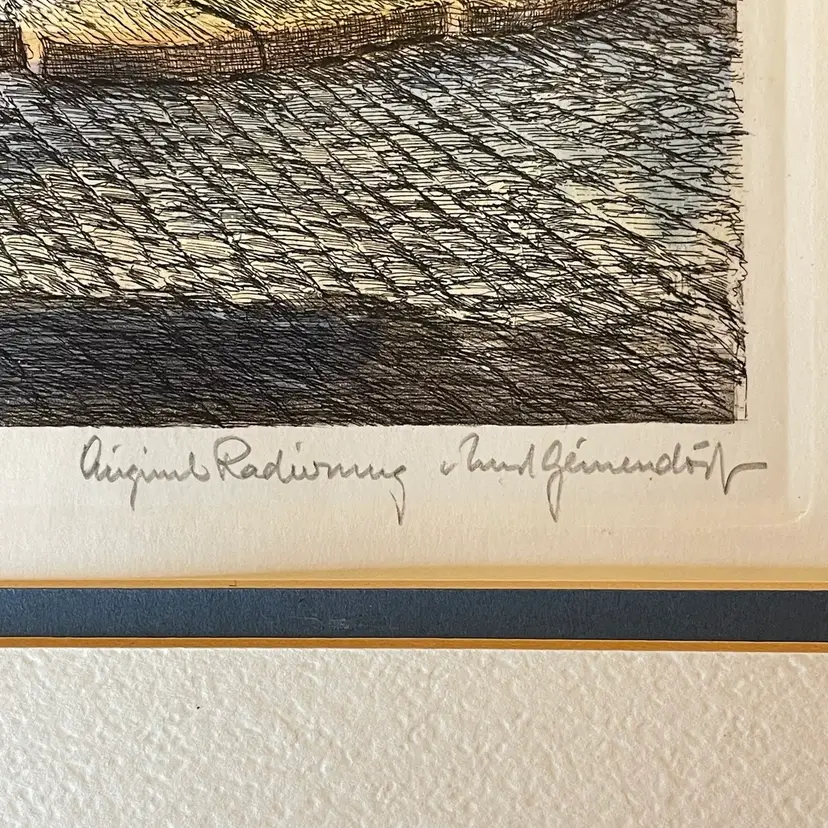 Original Radierung Ernst Geissendörfer